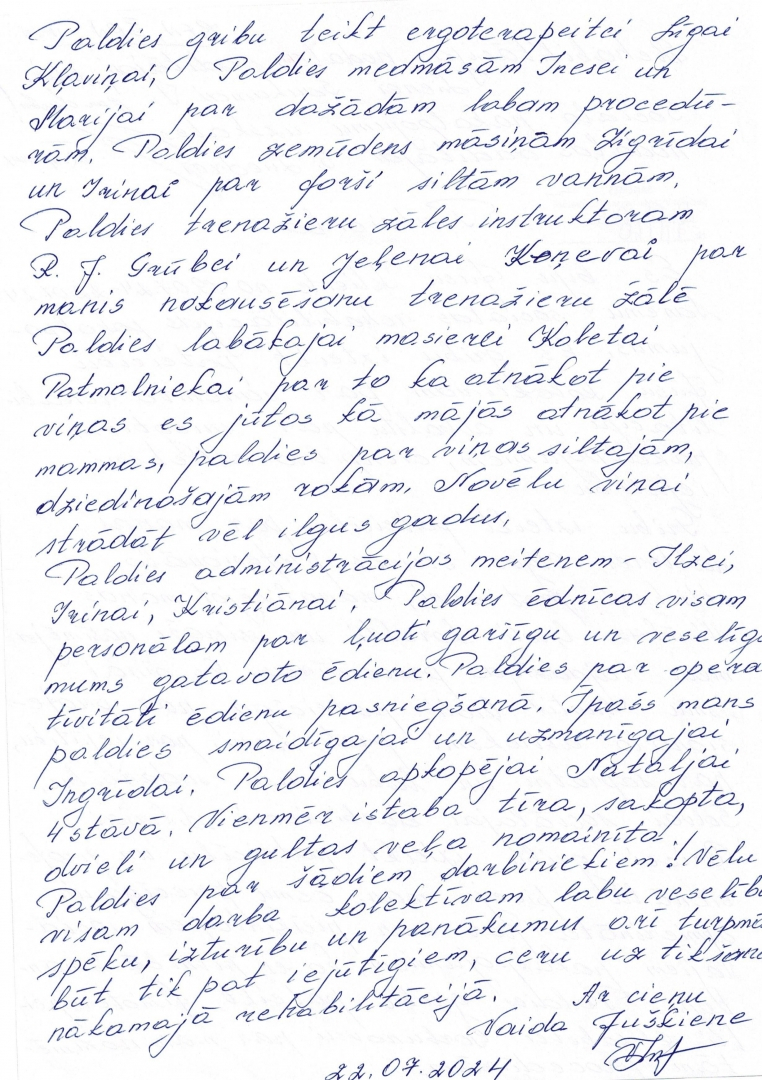 Paldies gribu teikt ergoterapeitei Līgai
Kļaviņai, Paldies medmāsām Inesei un
Marijai par dažādām labam procedū-
rām. Paldies zemūdens māsiņām Zigrīdai
un Irinai par forši siltām vannām.
Paldies trenažieru zāles instruktoram
R. J. Grūbei un Jeļenai Koņevai par
manis nokausēšanu trenažieru zālē
Paldies labākajai masierei Koletai
Patmalniekai par to ka atnākot pie
viņas es jūtos kā mājās atnākot pie
mammas, paldies par viņas siltajām,
dziedinošajām rokām. Novēlu viņai
strādāt vēl ilgus gadus.
Paldies administrācijas meitenem - Ilzei,
Irinai, Kristiānai. Paldies ēdnīcas visam
personālam par ļuoti garšīgu un veselīg
mums gatavoto ēdienu. Paldies par opera
tīvitāti ēdienu pasniegšanā. Īpašs mans
paldies smaidīgajai un uzmanīgajai
Ingrīdai. Paldies apkopējai Nataļjai
4 stāvā. Vienmēr istaba tīra, sakopta,
dvieli un gultas veļa nomainīta.
Paldies par šādiem darbiniekiem! Vēlu
visam darba kolektīvam labu veselību
spēku, izturību un panākumus arī turpmā
būt tik pat iejūtīgiem, ceru uz tikšano
nākamajā rehabilitācijā. Ar cieņu
Vaida Juškiene
22.07.2024